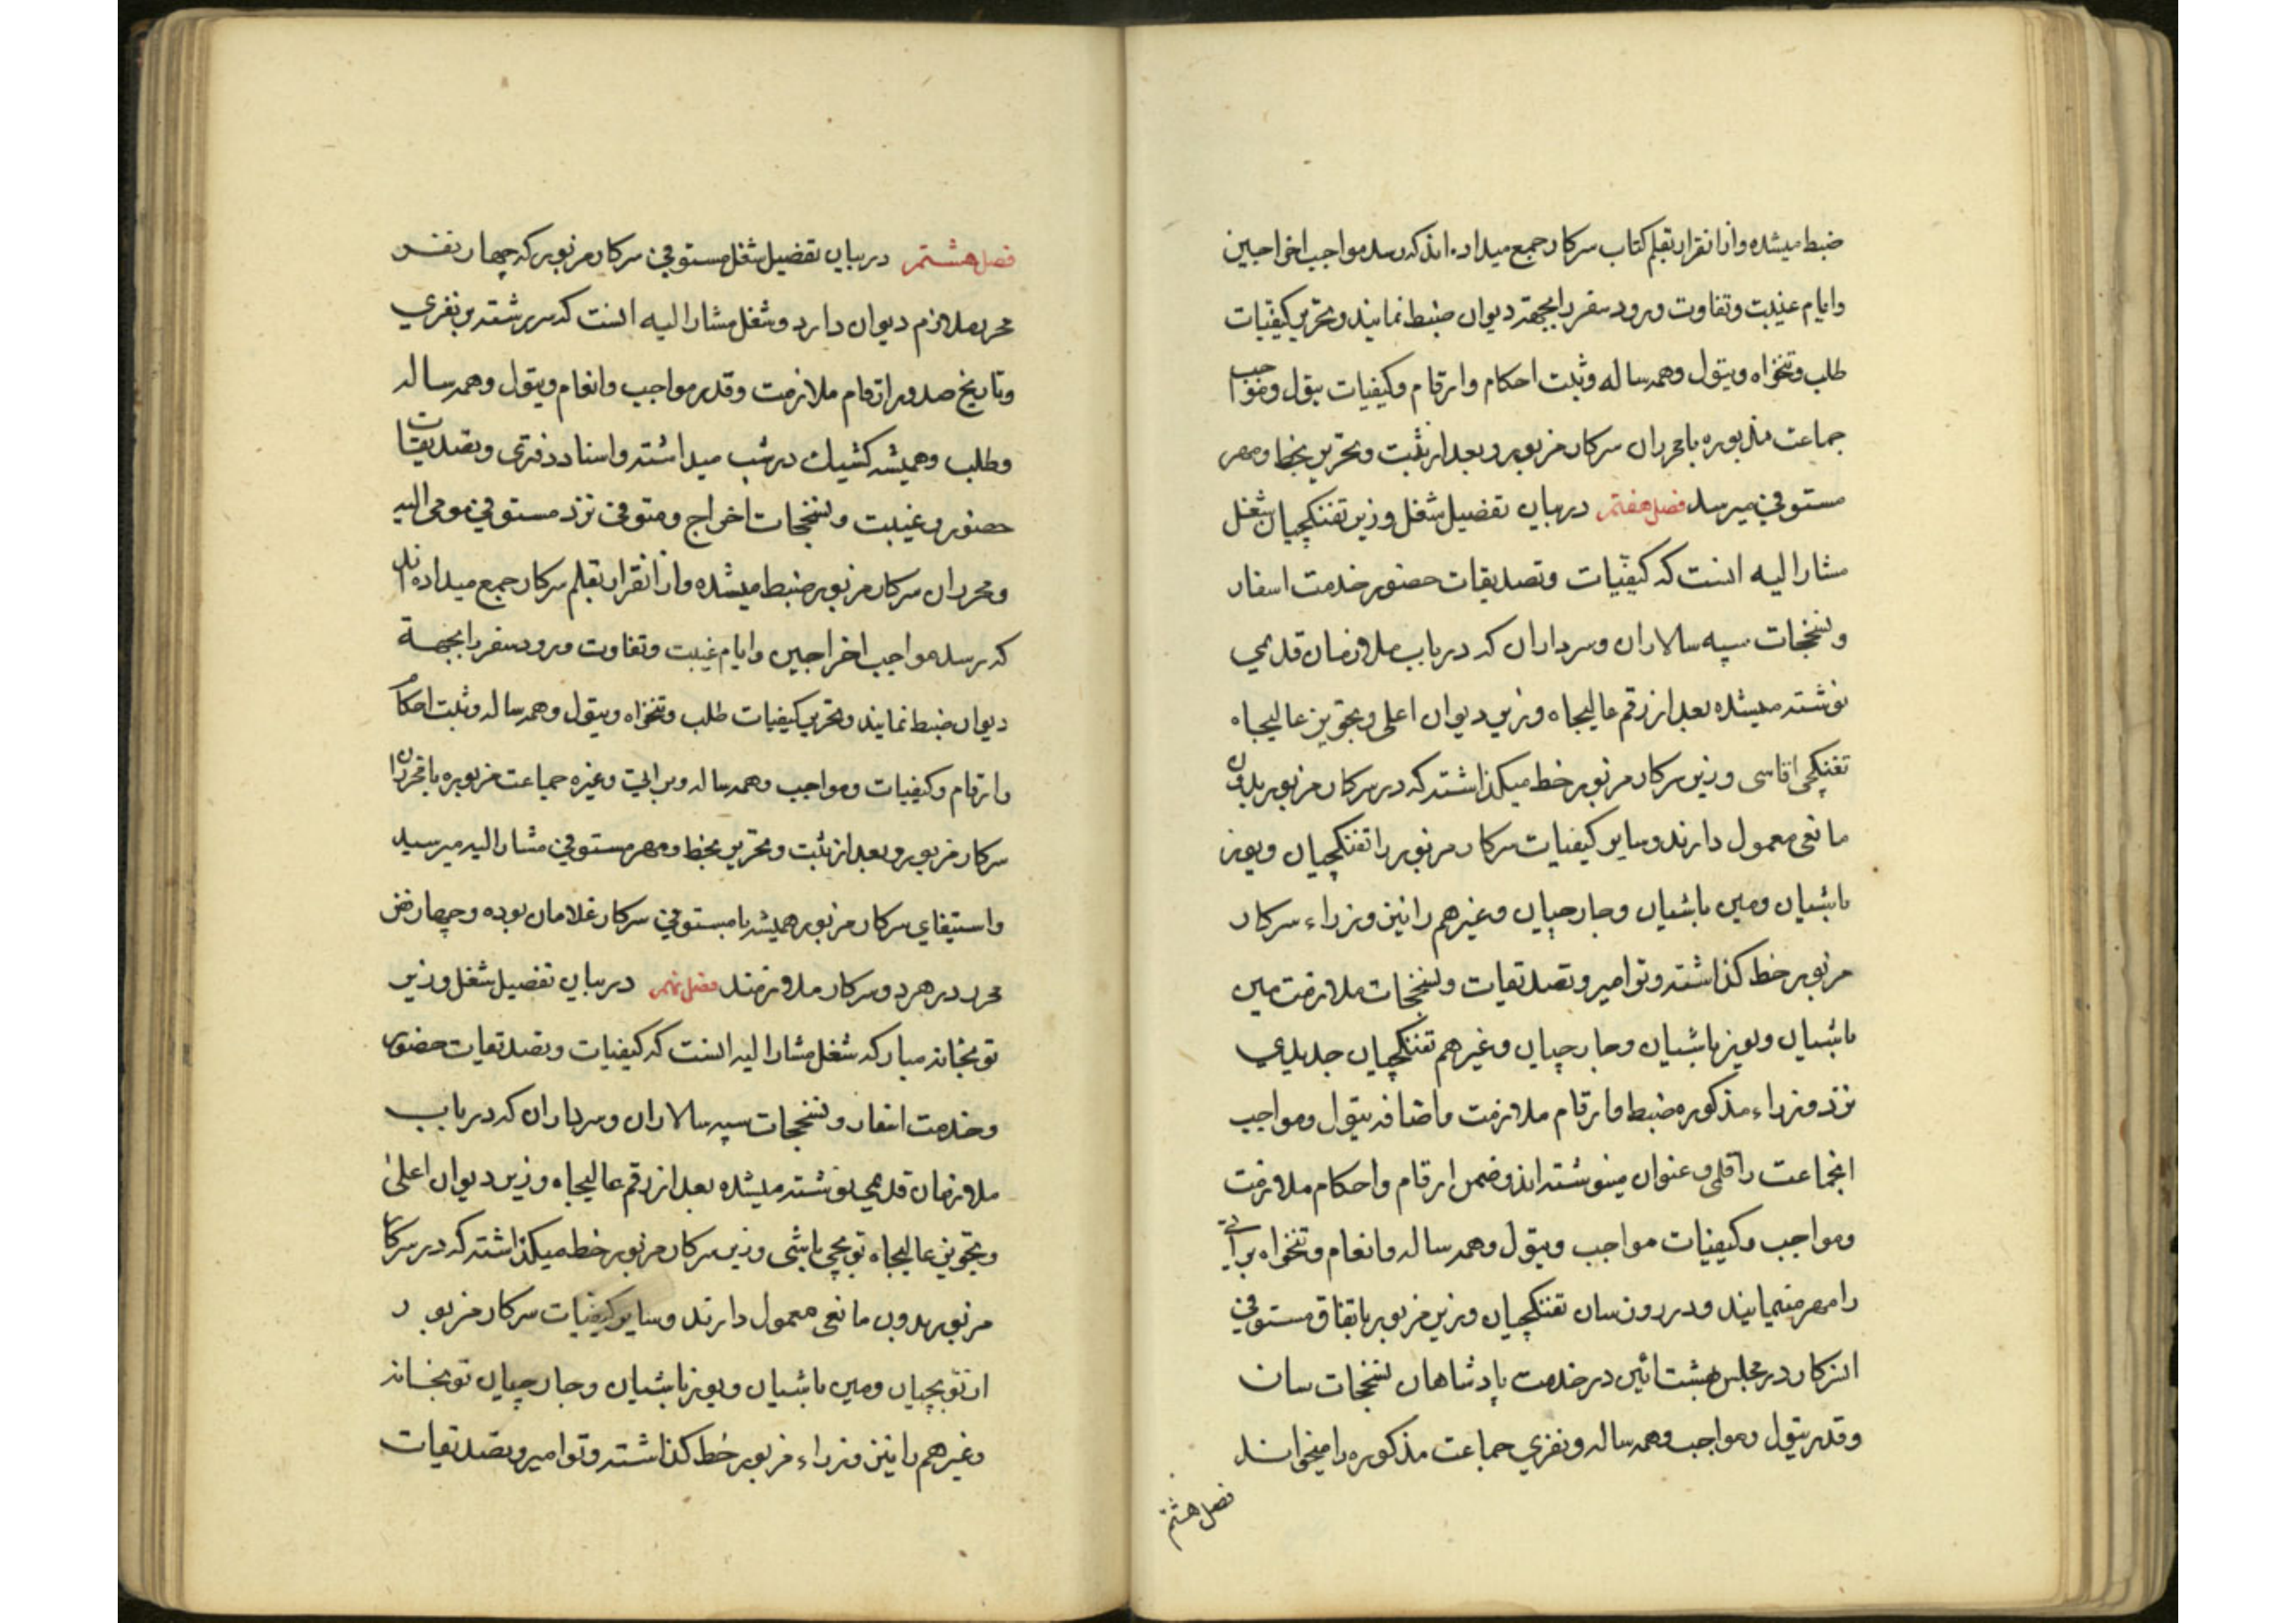 ضبط میشده و از انقرار بقلم کتاب سرکار جمع میداده‌اند که رسد مواجب اخراجین
وایام غیبت وتفاوت ورود سفر را بجهة دیوان ضبط نمایند وتحریر کیفیات
طلب وتنخواه وتیول وهمه ساله وثبت احکام وارقام وکیفیات تیول ومواجب
جماعت مذبوره با محرران سرکار مزبور و بعد از ثبت وتحریر بخط ومهر
مستوفی میرسد فصل هفتم در بیان تفضیل شغل وزیر تفنکچیان شغل
مشار الیه انست که کیفیات وتصدیقات حضور خدمت اسفار
ونسخجات سپه سالاران وسرداران که در باب ملازمان قدیمی
نوشته میشده بعد از رقم عالیجاه وزیر دیوان اعلی وتجویز عالیجاه
تفنکچی اقاسی وزیر سرکار مزبور خط میکذاشته که در سرکار مزبور بدون
مانعی معمول دارند وسایر کیفیات سرکار مزبور را تفنکچیان ویوز
باشیان ومین باشیان وجارچیان وغیرهم را نیز وزراء سرکار
مزبور خط کذاشته وتوامیر وتصدیقات ونسخجات ملازمت مین
باشیان ویوز باشیان وجارچیان وغیرهم تفنکچیان جدیدی
نزد وزراء مذکوره ضبط وارقام ملازمت واضافه تیول ومواجب
انجماعت را قلمی وعنوان مینوشته‌اند وضمن ارقام واحکام ملازمت
ومواجب وکیفیات مواجب وتیول وهمه ساله وانعام وتنخواه براتی
را مهر مینمایند ودر روز سان تفنکچیان وزیر مزبور باتفاق مستوفی
انزکار در مجلس بهشت آئین در خدمت پادشاهان نسخجات سان
وقدر تیول ومواجب وهمه ساله ونفری جماعت مذکوره را میخوانند
فصل هشتم
فصل هشتم در بیان تفضیل شغل مستوفی سرکار مزبور که چهار نفر
محرر ملازم دیوان دارد وشغل مشار الیه انست که سررشته بر نفری
وتاریخ صدور ارقام ملازمت وقدر مواجب وانعام وتیول وهمه ساله
وطلب وهمیشه کشیک در شب میداشته واسناد دفتری وتصدیقات
حضور و غیبت ونسخجات اخراج ومتوفی نزد مستوفی مومی الیه
ومحرران سرکار مزبور ضبط میشده واز انقرار بقلم سرکار جمع میداده‌اند
که رسد مواجب اخراجین وایام غیبت وتفاوت ورود سفر را بجهة
دیوان ضبط نمایند وتحریر کیفیات طلب وتنخواه وتیول وهمه ساله وثبت احکام
وارقام وکیفیات ومواجب وهمه ساله وبراتی وغیره جماعت مزبوره با محرران
سرکار مزبور و بعد از ثبت وتحریر بخط ومهر مستوفی مشار الیه میرسید
واستیفای سرکار مزبور همیشه با مستوفی سرکار غلامان بوده وچهار نفر
محرر در هر دو سرکار ملازمند فصل نهم در بیان تفضیل شغل وزیر
توپخانه مبارکه شغل مشار الیه انست که کیفیات وتصدیقات حضور
وخدمت اسفار ونسخجات سپه سالاران وسرداران که در باب
ملازمان قدیمی نوشته میشده بعد از رقم عالیجاه وزیر دیوان اعلی
وتجویز عالیجاه توپچی باشی وزیر سرکار مزبور خط میکذاشته که در سرکار
مزبور بدون مانعی معمول دارند وسایر کیفیات سرکار مزبور
از توپچیان ومین باشیان ویوز باشیان وجارچیان توپخانه
وغیرهم را نیز وزراء مزبور خط کذاشته وتوامیر وتصدیقات